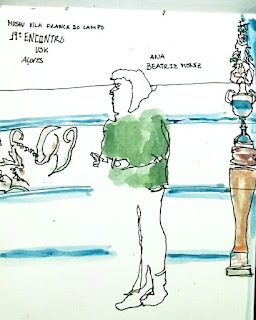 MUSEU VILA FRANCA DO CAMPO
19º ENCONTRO
USK
AÇORES
ANA
BEATRIZ